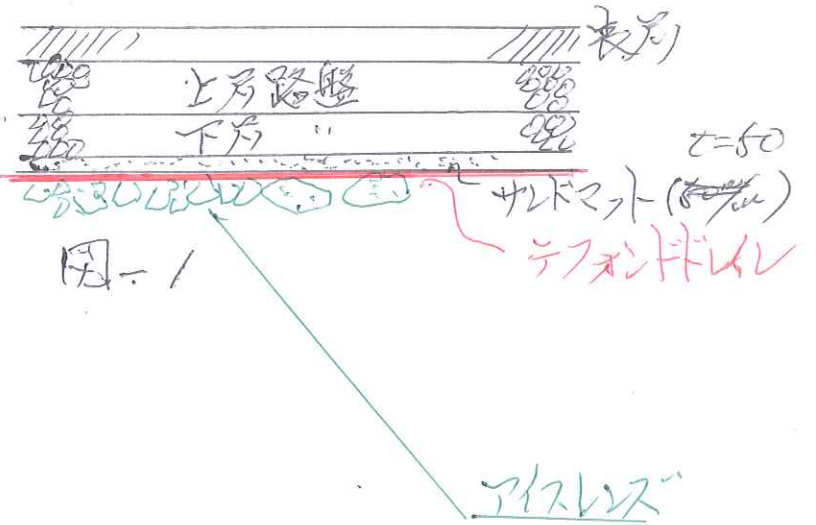 表層
上層路盤
下層 〃
t=50
サンドマット( )
デフォンドドレイン
図-1
アイスレンズ